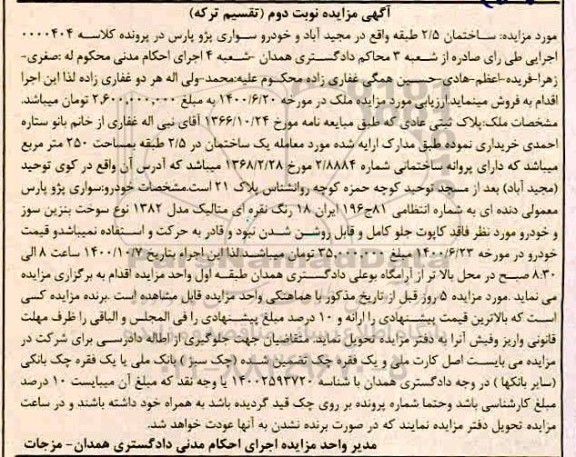 آگهی مزایده نوبت دوم (تقسیم ترکه)
مورد مزایده: ساختمان ۲/۵ طبقه واقع در مجید آباد و خودرو سواری پژو پارس در پرونده کلاسه ۰۰۰۰۴۰۴
اجرایی طی رای صادره از شعبه ۳ محاکم دادگستری همدان -شعبه ۴ اجرای احکام مدنی محکوم له :صغری-
زهرا-فریده-اعظم-هادی-حسین همگی غفاری زاده محکوم علیه:محمد-ولی اله هر دو غفاری زاده لذا این اجرا
اقدام به فروش مینماید.ارزیابی مورد مزایده ملک در مورخه ۱۴۰۰/۶/۲۰ به مبلغ ۲,۶۰۰,۰۰۰,۰۰۰ تومان میباشد.
مشخصات ملک:پلاک ثبتی عادی که طبق مبایعه نامه مورخ ۱۳۶۶/۱۰/۲۴ آقای نبی اله غفاری از خانم بانو ستاره
احمدی خریداری نموده طبق مدارک ارایه شده مورد معامله یک ساختمان در ۲/۵ طبقه بمساحت ۲۵۰ متر مربع
میباشد که دارای پروانه ساختمانی شماره ۲/۸۸۸۴ مورخ ۱۳۶۸/۲/۲۸ میباشد که آدرس آن واقع در کوی توحید
(مجید آباد) بعد از مسجد توحید کوچه حمزه کوچه روانشناس پلاک ۲۱ است.مشخصات خودرو:سواری پژو پارس
معمولی دنده ای به شماره انتظامی ۸۱ج۱۹۶ ایران ۱۸ رنگ نقره ای متالیک مدل ۱۳۸۲ نوع سوخت بنزین سوز
و خودرو مورد نظر فاقد کاپوت جلو کامل و قابل روشن شدن نبود و قادر به حرکت و استفاده نمیباشدو قیمت
خودرو در مورخه ۱۴۰۰/۶/۲۳ مبلغ ۳۵,۰۰۰,۰۰۰ تومان میباشد.لذا این اجراء بتاریخ ۱۴۰۰/۱۰ ساعت ۸ الی
۸:۳۰ صبح در محل بالا تر از آرامگاه بوعلی دادگستری همدان طبقه اول واحد مزایده اقدام به برگزاری مزایده
می نماید .مورد مزایده ۵ روز قبل از تاریخ مذکور با هماهنگی واحد مزایده قابل مشاهده است .برنده مزایده کسی
است که بالاترین قیمت پیشنهادی را ارائه و ۱۰ درصد مبلغ پیشنهادی را فی المجلس و الباقی را ظرف مهلت
قانونی واریز وفیش آنرا به دفتر مزایده تحویل نماید. متقاضیان جهت جلوگیری از اطاله دادرسی برای شرکت در
مزایده می بایست اصل کارت ملی و یک فقره چک تضمین شده (چک سبز) بانک ملی یا یک فقره چک بانکی
(سایر بانکها ) در وجه دادگستری همدان با شناسه ۱۴۰۰۲۵۹۳۷۲۰ یا وجه نقد که مبلغ آن میبایست ۱۰ درصد
مبلغ کارشناسی باشد وحتما شماره پرونده بر روی چک قید گردیده باشد به همراه خود داشته باشند و در ساعت
مزایده تحویل دفتر مزایده نمایند که در صورت برنده نشدن به آنها عودت خواهد شد.
مدیر واحد مزایده اجرای احکام مدنی دادگستری همدان- مزجات